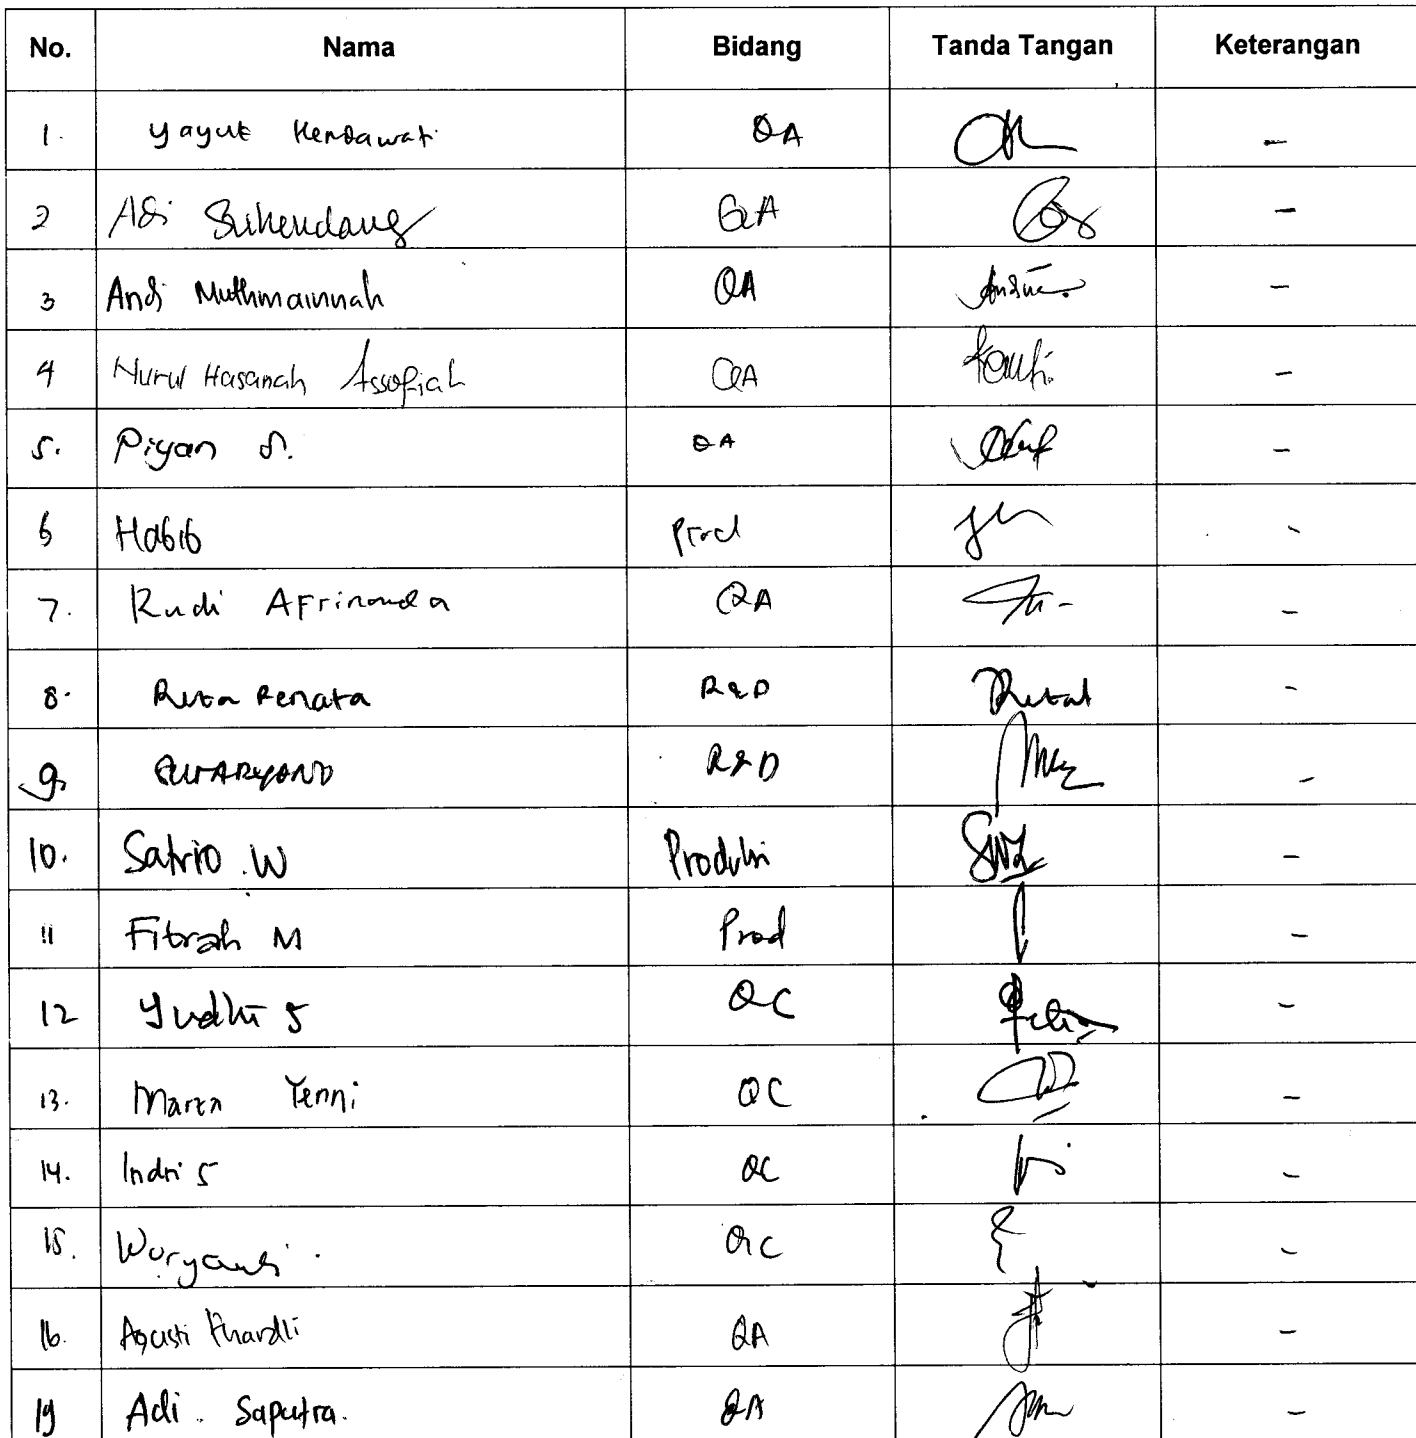 No. Nama Bidang Tanda Tangan Keterangan
1. Yayuk Hendawati QA -
2 Adi Suhendang QA -
3 Andi Muthmainnah QA -
4 Nurul Hasanah Assofiah QA -
5. Piyan S. QA -
6 Habib Prod -
7. Rudi Afrinanda QA -
8. Renata R&D -
9. R&D -
10. Satrio .W Produksi -
11 Fitrah M Prod -
12 Yudhi S QC -
13. Yenni QC -
14. Indri S QC -
15. QC -
16. Agusti QA -
Adi. Saputra. QA -